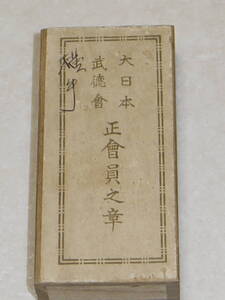 大日本
武徳會
正會員之章